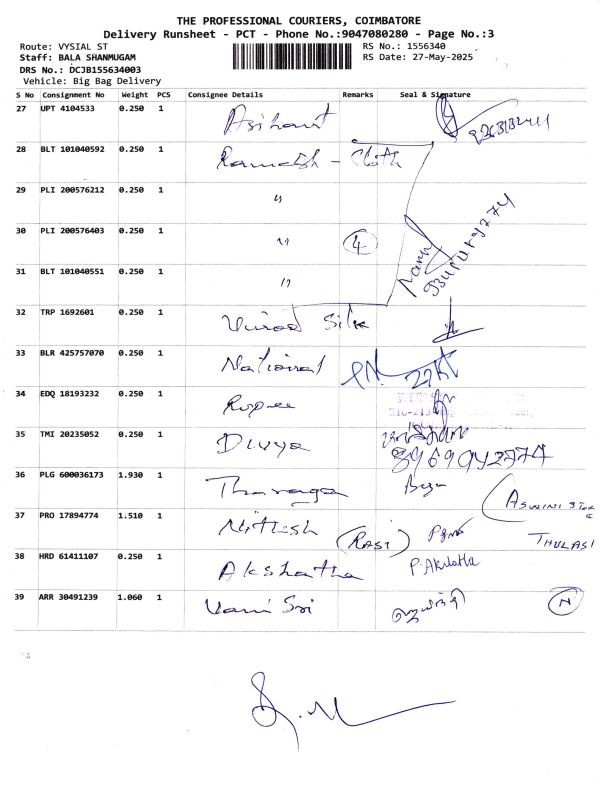 THE PROFESSIONAL COURIERS, COIMBATORE
Delivery Runsheet - PCT - Phone No.:9047080280 - Page No.:3
Route: VYSIAL ST
RS No.: 1556340
Staff: BALA SHANMUGAM
RS Date: 27-May-2025
DRS No.: DCJB155634003
Vehicle: Big Bag Delivery
S No Consignment No Weight PCS Consignee Details Remarks Seal & Signature
27 UPT 4104533 0.250 1 Arihant
28 BLT 101040592 0.250 1 Ramesh - Cloth
29 PLI 200576212 0.250 1 "
30 PLI 200576403 0.250 1 " 4
31 BLT 101040551 0.250 1 "
32 TRP 1692601 0.250 1 Silk
33 BLR 425757070 0.250 1 National
34 EDQ 18193232 0.250 1 Rupee
35 TMI 20235052 0.250 1 Divya
36 PLG 600036173 1.930 1 Tharaga
ASWINI STORE
37 PRO 17894774 1.510 1 Nithish (RASI)
THULASI
38 HRD 61411107 0.250 1 Akshatha P. Akilatha
39 ARR 30491239 1.060 1 Vani Sri N